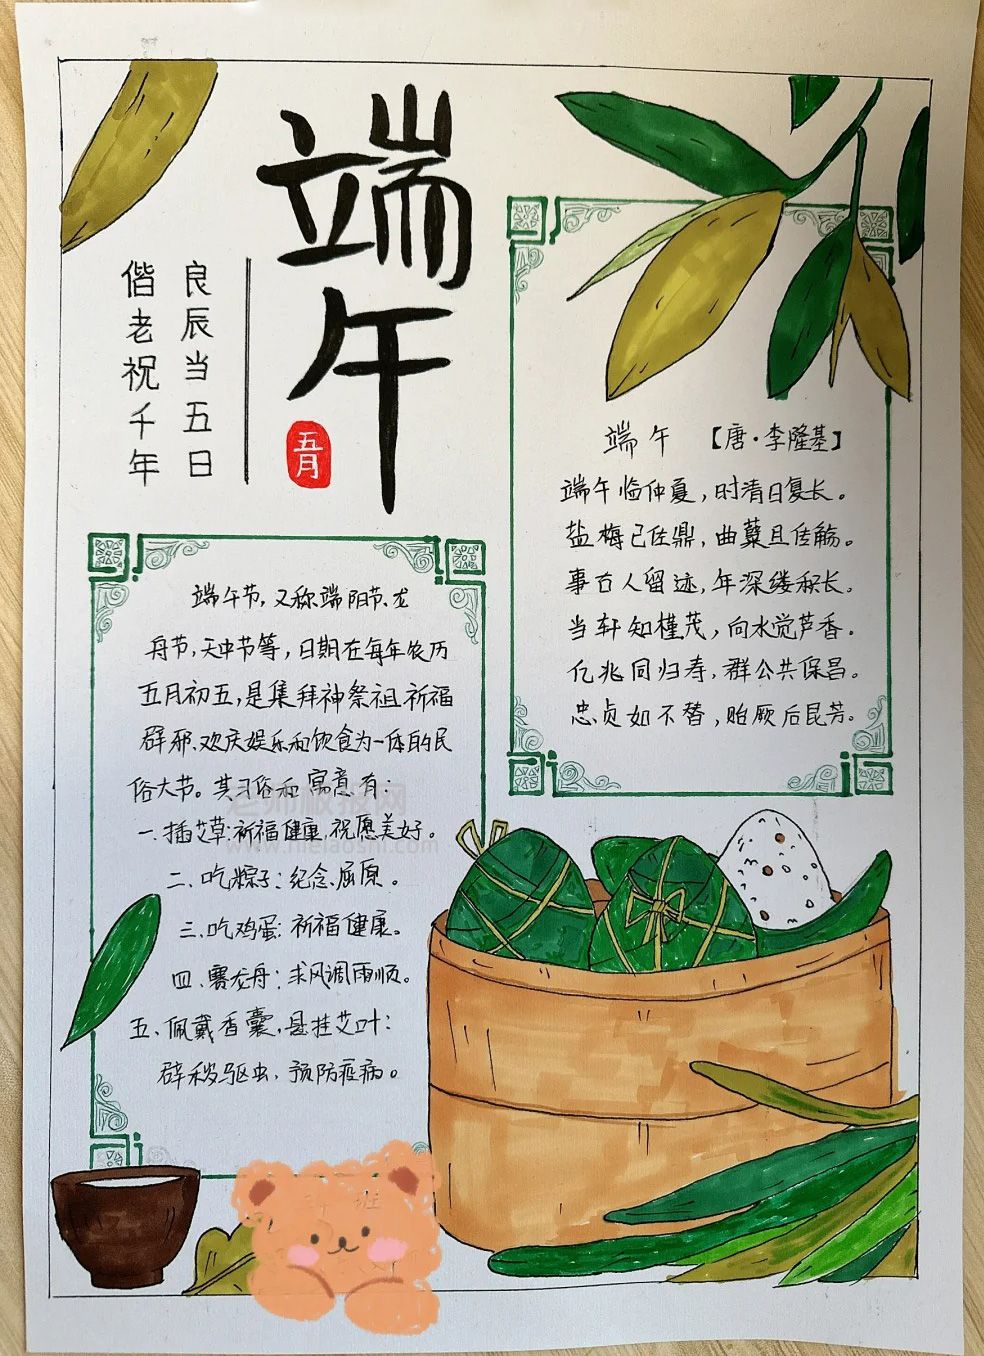 端午
五月
良辰当五日
偕老祝千年
端午 【唐·李隆基】
端午临仲夏，时清日复长。
盐梅已佐鼎，曲糵且传觞。
事古人留迹，年深缕积长。
当轩知槿茂，向水觉芦香。
亿兆同归寿，群公共保昌。
忠贞如不替，贻厥后昆芳。
端午节，又称端阳节、龙
舟节，天中节等，日期在每年农历
五月初五，是集拜神祭祖、祈福
辟邪、欢庆娱乐和饮食为一体的民
俗大节。其习俗和寓意有：
一、插艾草：祈福健康，祝愿美好。
二、吃粽子：纪念屈原。
三、吃鸡蛋：祈福健康。
四、赛龙舟：求风调雨顺。
五、佩戴香囊，悬挂艾叶：
辟秽驱虫，预防疫病。
老师板报网